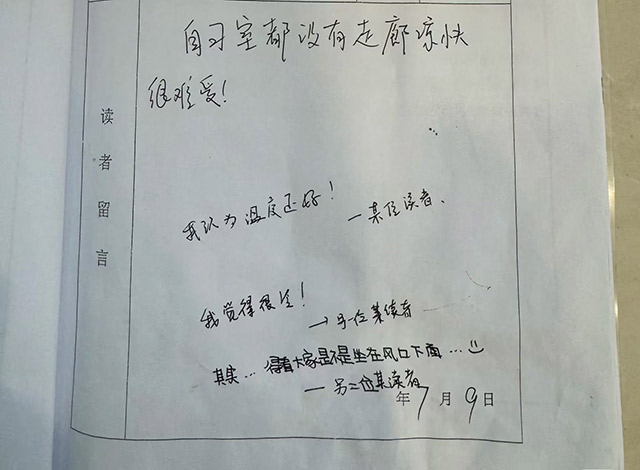 自习室都没有走廊凉快
很难受！
读者留言
我认为温度还好！
一某位读者、
我觉得很冷！
→另一位某读者
其实… 得看大家是不是坐在风口下面…
一另二位某读者
年7月9日